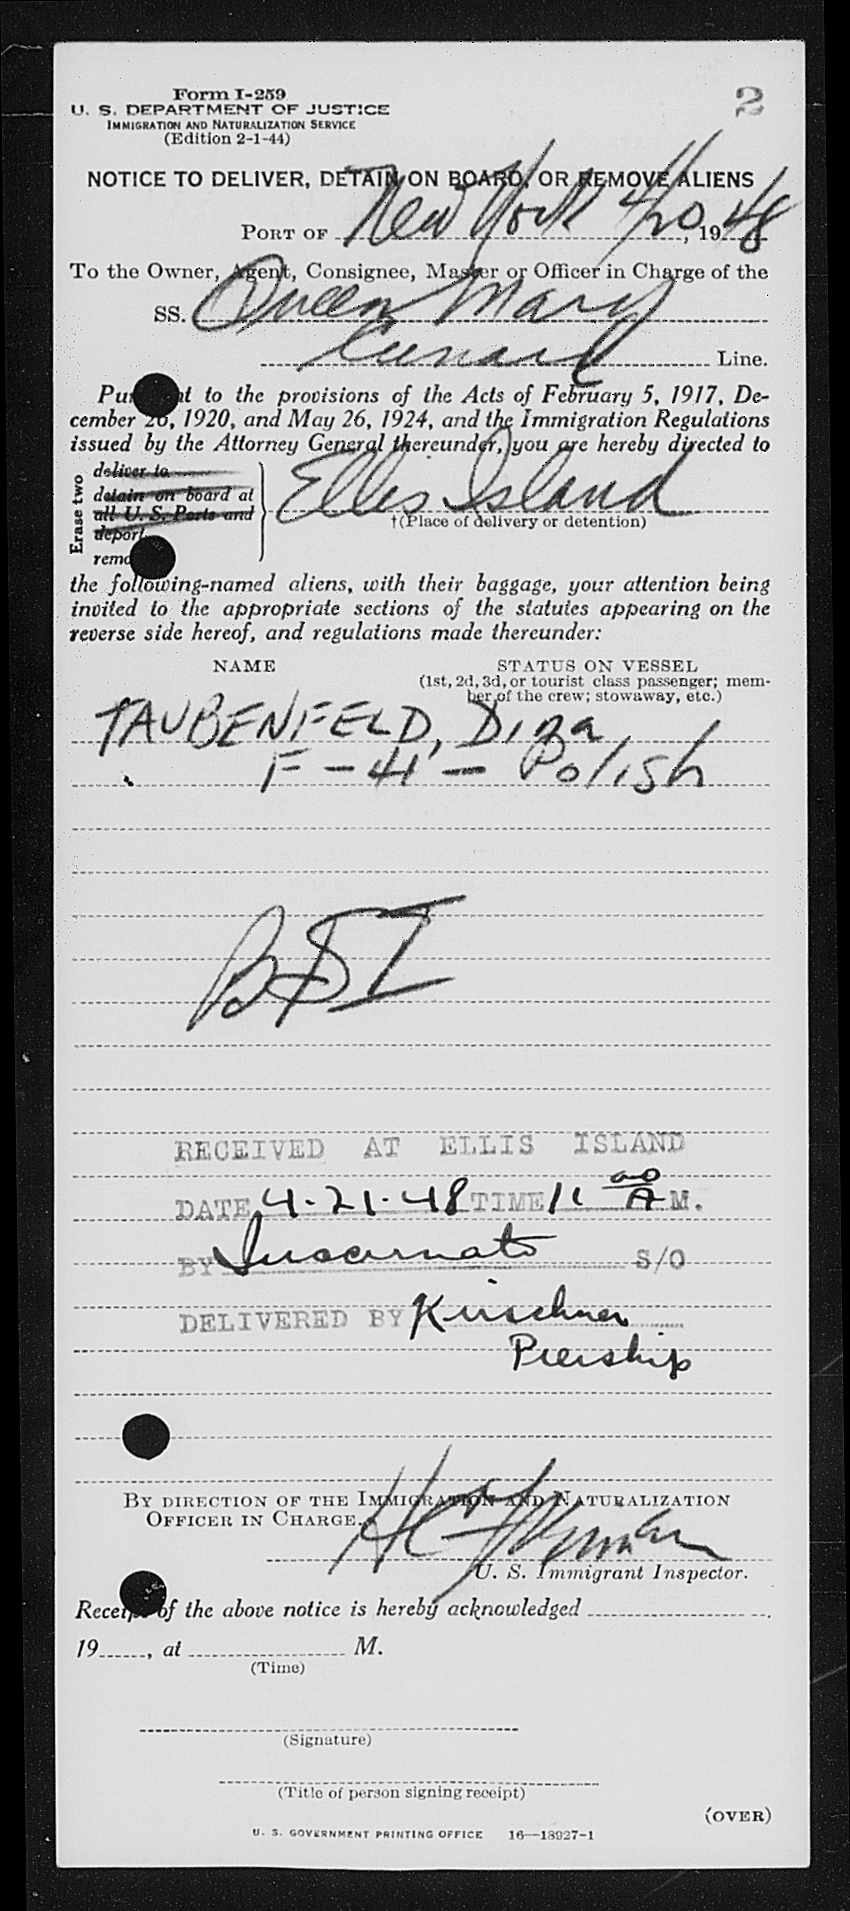 Form I-259
2
U. S. DEPARTMENT OF JUSTICE
IMMIGRATION AND NATURALIZATION SERVICE
(Edition 2-1-44)
NOTICE TO DELIVER, DETAIN ON BOARD, OR REMOVE ALIENS
PORT OF New York 4/20, 1948
To the Owner, Agent, Consignee, Master or Officer in Charge of the
SS. Queen Mary
Cunard Line.
to the provisions of the Acts of February 5, 1917, De-
cember 26, 1920, and May 26, 1924, and the Immigration Regulations
issued by the Attorney General thereunder, you are hereby directed to
Erase two
deliver to
detain on board at
all U. S. Ports and
deport
Ellis Island
†(Place of delivery or detention)
the following-named aliens, with their baggage, your attention being
invited to the appropriate sections of the statutes appearing on the
reverse side hereof, and regulations made thereunder:
NAME STATUS ON VESSEL
(1st, 2d, 3d, or tourist class passenger; mem-
ber of the crew; stowaway, etc.)
TAUBENFELD, Dina
F - 41 - Polish
BSI
RECEIVED AT ELLIS ISLAND
DATE 4-21-48 TIME 11 00 A M.
BY S/O
DELIVERED BY Kirschner
BY DIRECTION OF THE IMMIGRATION AND NATURALIZATION
OFFICER IN CHARGE.
U. S. Immigrant Inspector.
Receipt of the above notice is hereby acknowledged
19......, at M.
(Time)
(Signature)
(Title of person signing receipt)
(OVER)
U. S. GOVERNMENT PRINTING OFFICE 16—18927-1